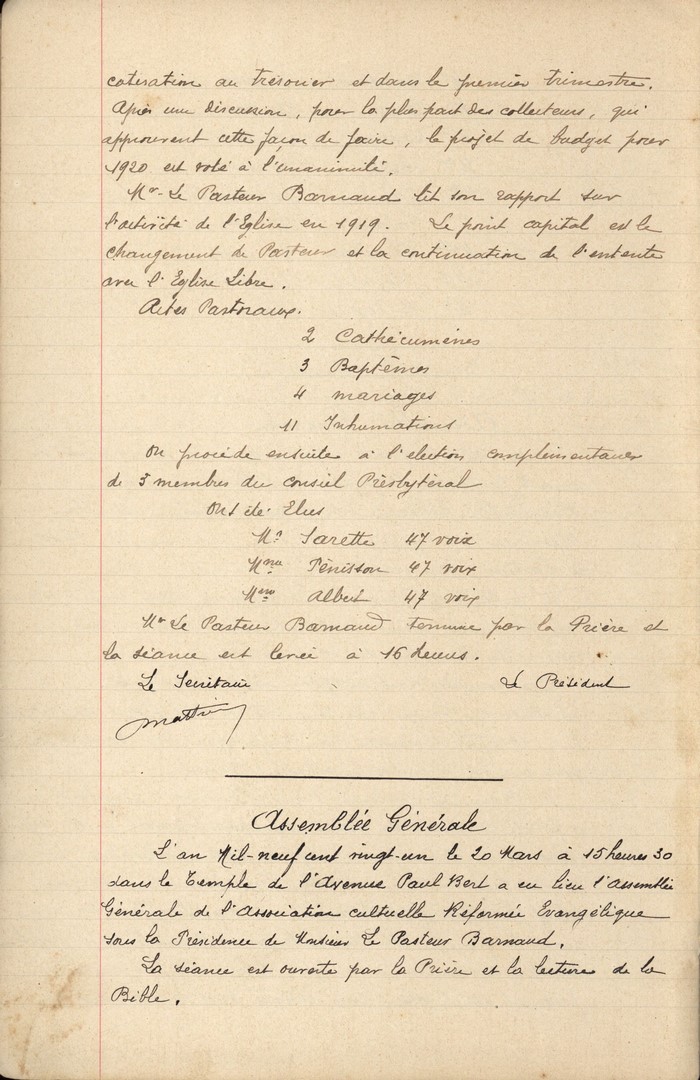 cotisation au trésorier et dans le premier trimestre.
Après une discussion, pour la plus part des collecteurs, qui
approuvent cette façon de faire, le projet de budget pour
1920 est voté à l'unanimité.
Mr. Le Pasteur Barnaud lit son rapport sur
l'activité de l'Eglise en 1919. Le point capital est le
changement de Pasteur et la continuation de l'entente
avec l'Eglise Libre.
Actes Pastoraux.
2 Cathécumènes
3 Baptêmes
4 mariages
11 Inhumations
On procède ensuite à l'election complémentaire
de 3 membres du conseil Presbytéral
Ont été Elus
Mr. Sarette 47 voix
Mme Pénisson 47 voix
Mme Albert 47 voix
Mr Le Pasteur Barnaud termine par la Prière et
la séance est levée à 16 heures.
Le Secrétaire Le Président
Assemblée Générale
L'an Mil-neuf cent vingt-un le 20 Mars à 15 heures 30
dans le Temple de l'Avenue Paul Bert a eu lieu l'assemblée
Générale de l'Association cultuelle Réformée Evangélique
sous la Présidence de Monsieur Le Pasteur Barnaud.
La séance est ouverte par la Prière et la lecture de la
Bible.